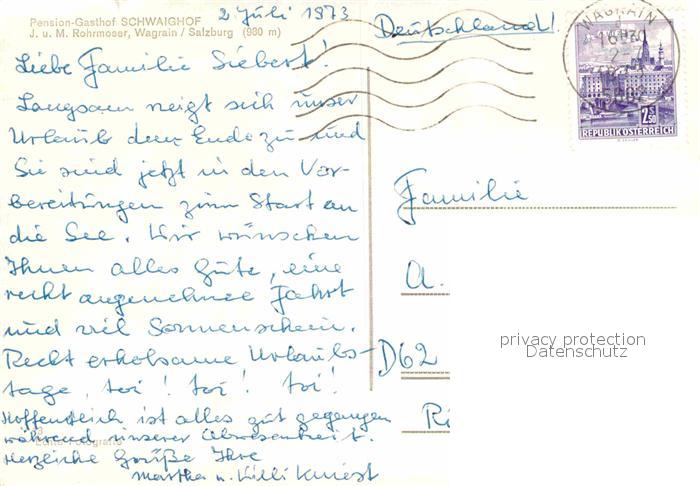 Pension-Gasthof SCHWAIGHOF
J. u. M. Rohrmoser, Wagrain / Salzburg (980 m)
2. Juli 1973
Liebe Familie Siebert!
Langsam neigt sich unser
Urlaub dem Ende zu und
Sie sind jetzt in den Vor-
bereitungen zum Start an
die See. Wir wünschen
Ihnen alles Gute, eine
recht angenehme Fahrt
und viel Sonnenschein.
Recht erholsame Urlaubs-
tage, toi! toi! toi!
Hoffentlich ist alles gut gegangen
während unserer Abwesenheit.
Herzliche Grüße Ihre
Martha u. Willi Kniest
Deutschland!
WAGRAIN
2.50
REPUBLIK ÖSTERREICH
Familie
A.
D62
Ri
privacy protection
Datenschutz